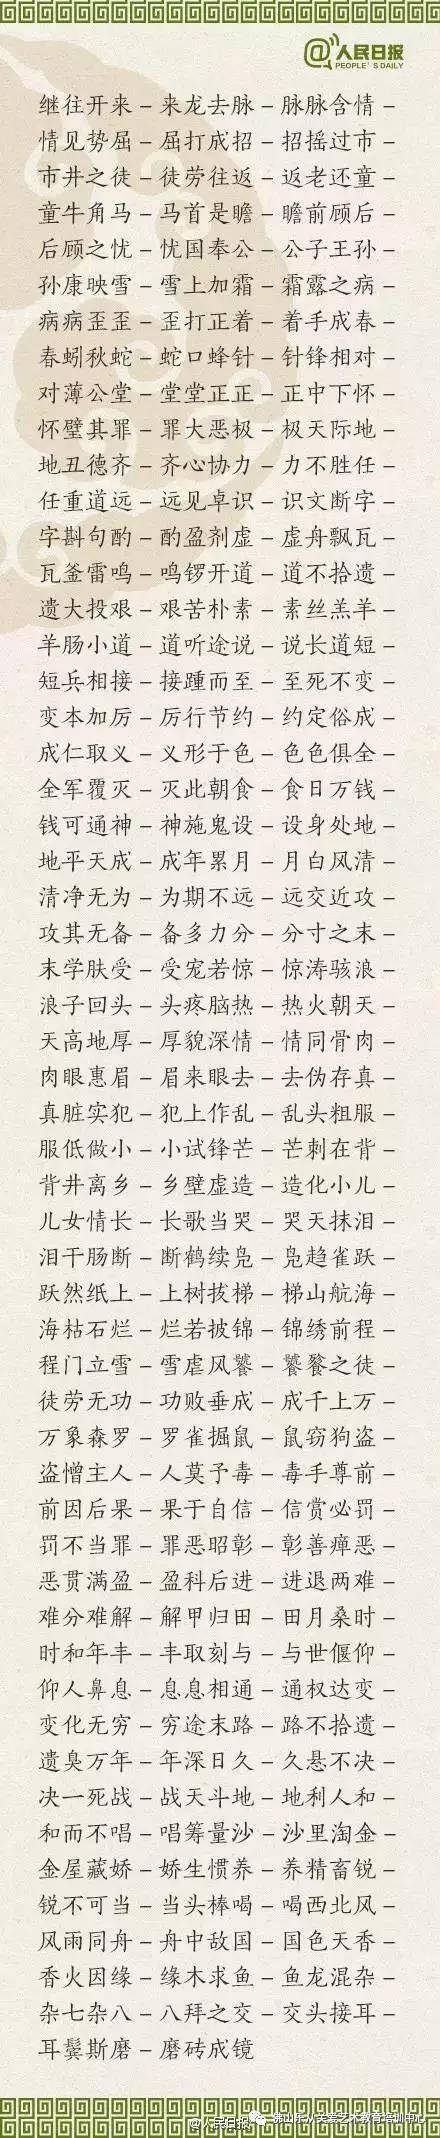 @人民日报
PEOPLE'S DAILY
继往开来 – 来龙去脉 – 脉脉含情 –
情见势屈 – 屈打成招 – 招摇过市 –
市井之徒 – 徒劳往返 – 返老还童 –
童牛角马 – 马首是瞻 – 瞻前顾后 –
后顾之忧 – 忧国奉公 – 公子王孙 –
孙康映雪 – 雪上加霜 – 霜露之病 –
病病歪歪 – 歪打正着 – 着手成春 –
春蚓秋蛇 – 蛇口蜂针 – 针锋相对 –
对薄公堂 – 堂堂正正 – 正中下怀 –
怀璧其罪 – 罪大恶极 – 极天际地 –
地丑德齐 – 齐心协力 – 力不胜任 –
任重道远 – 远见卓识 – 识文断字 –
字斟句酌 – 酌盈剂虚 – 虚舟飘瓦 –
瓦釜雷鸣 – 鸣锣开道 – 道不拾遗 –
遗大投艰 – 艰苦朴素 – 素丝羔羊 –
羊肠小道 – 道听途说 – 说长道短 –
短兵相接 – 接踵而至 – 至死不变 –
变本加厉 – 厉行节约 – 约定俗成 –
成仁取义 – 义形于色 – 色色俱全 –
全军覆灭 – 灭此朝食 – 食日万钱 –
钱可通神 – 神施鬼设 – 设身处地 –
地平天成 – 成年累月 – 月白风清 –
清净无为 – 为期不远 – 远交近攻 –
攻其无备 – 备多力分 – 分寸之末 –
末学肤受 – 受宠若惊 – 惊涛骇浪 –
浪子回头 – 头疼脑热 – 热火朝天 –
天高地厚 – 厚貌深情 – 情同骨肉 –
肉眼惠眉 – 眉来眼去 – 去伪存真 –
真脏实犯 – 犯上作乱 – 乱头粗服 –
服低做小 – 小试锋芒 – 芒刺在背 –
背井离乡 – 乡壁虚造 – 造化小儿 –
儿女情长 – 长歌当哭 – 哭天抹泪 –
泪干肠断 – 断鹤续凫 – 凫趋雀跃 –
跃然纸上 – 上树拔梯 – 梯山航海 –
海枯石烂 – 烂若披锦 – 锦绣前程 –
程门立雪 – 雪虐风饕 – 饕餮之徒 –
徒劳无功 – 功败垂成 – 成千上万 –
万象森罗 – 罗雀掘鼠 – 鼠窃狗盗 –
盗憎主人 – 人莫予毒 – 毒手尊前 –
前因后果 – 果于自信 – 信赏必罚 –
罚不当罪 – 罪恶昭彰 – 彰善瘅恶 –
恶贯满盈 – 盈科后进 – 进退两难 –
难分难解 – 解甲归田 – 田月桑时 –
时和年丰 – 丰取刻与 – 与世偃仰 –
仰人鼻息 – 息息相通 – 通权达变 –
变化无穷 – 穷途末路 – 路不拾遗 –
遗臭万年 – 年深日久 – 久悬不决 –
决一死战 – 战天斗地 – 地利人和 –
和而不唱 – 唱筹量沙 – 沙里淘金 –
金屋藏娇 – 娇生惯养 – 养精畜锐 –
锐不可当 – 当头棒喝 – 喝西北风 –
风雨同舟 – 舟中敌国 – 国色天香 –
香火因缘 – 缘木求鱼 – 鱼龙混杂 –
杂七杂八 – 八拜之交 – 交头接耳 –
耳鬓斯磨 – 磨砖成镜
@人民日报 佛山乐从关爱艺术教育培训中心